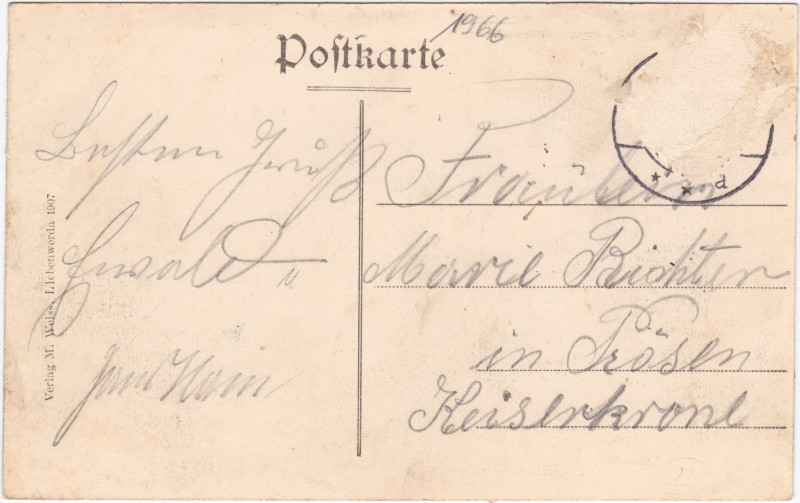 1966
Postkarte
Besten Gruß
Ewald
Fräulein
Marie Richter
in Prösen
Keiserkrone
Verlag M. Weiss, Liebenwerda 1907
d